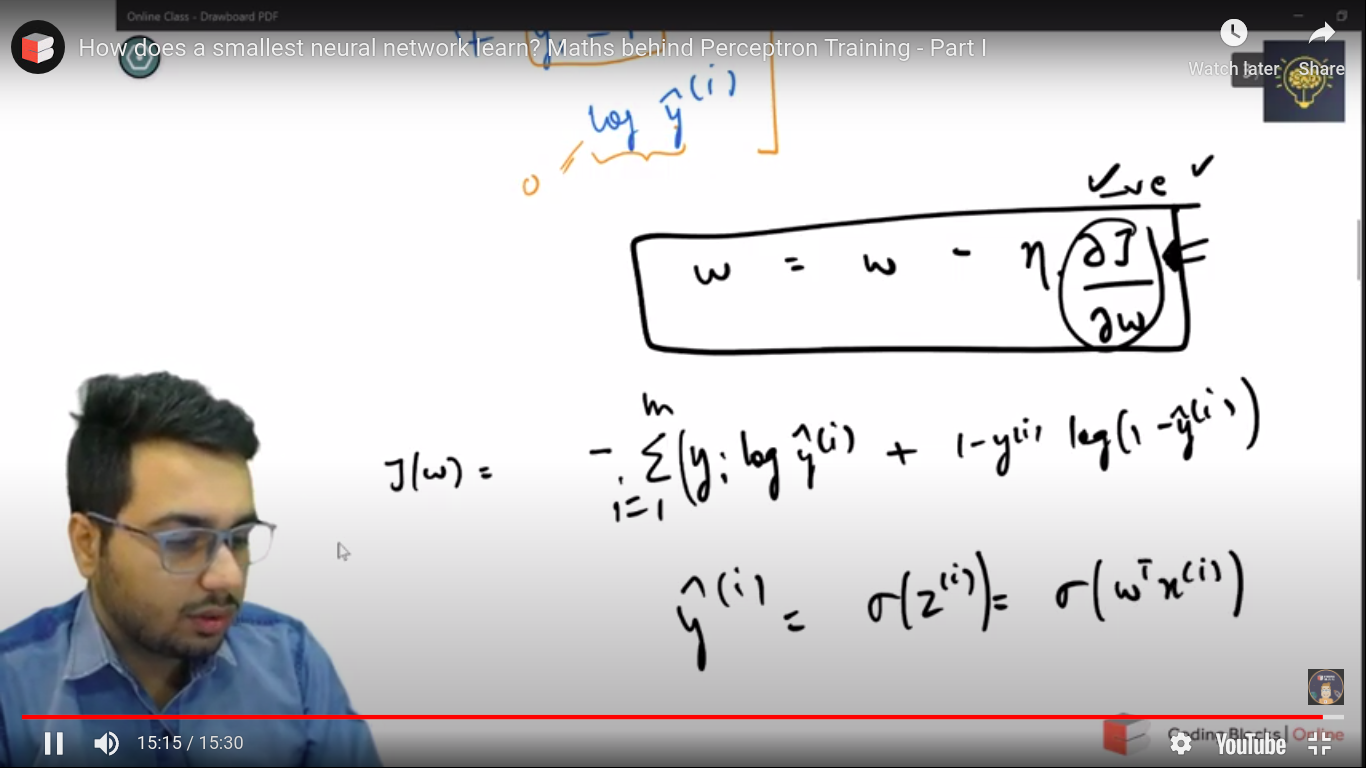 Online Class - Drawboard PDF
How does a smallest neural network learn? Maths behind Perceptron Training - Part I
Watch later
Share
log ŷ^(i) ]
0
✓ -ve ✓
w = w - η . ∂J/∂w
J(w) = - Σ_{i=1}^{m} (y_i log ŷ^(i) + 1-y^(i) log(1-ŷ^(i))
ŷ^(i) = σ(z^(i)) = σ(w^T x^(i))
15:15 / 15:30
Coding Blocks | Online
YouTube